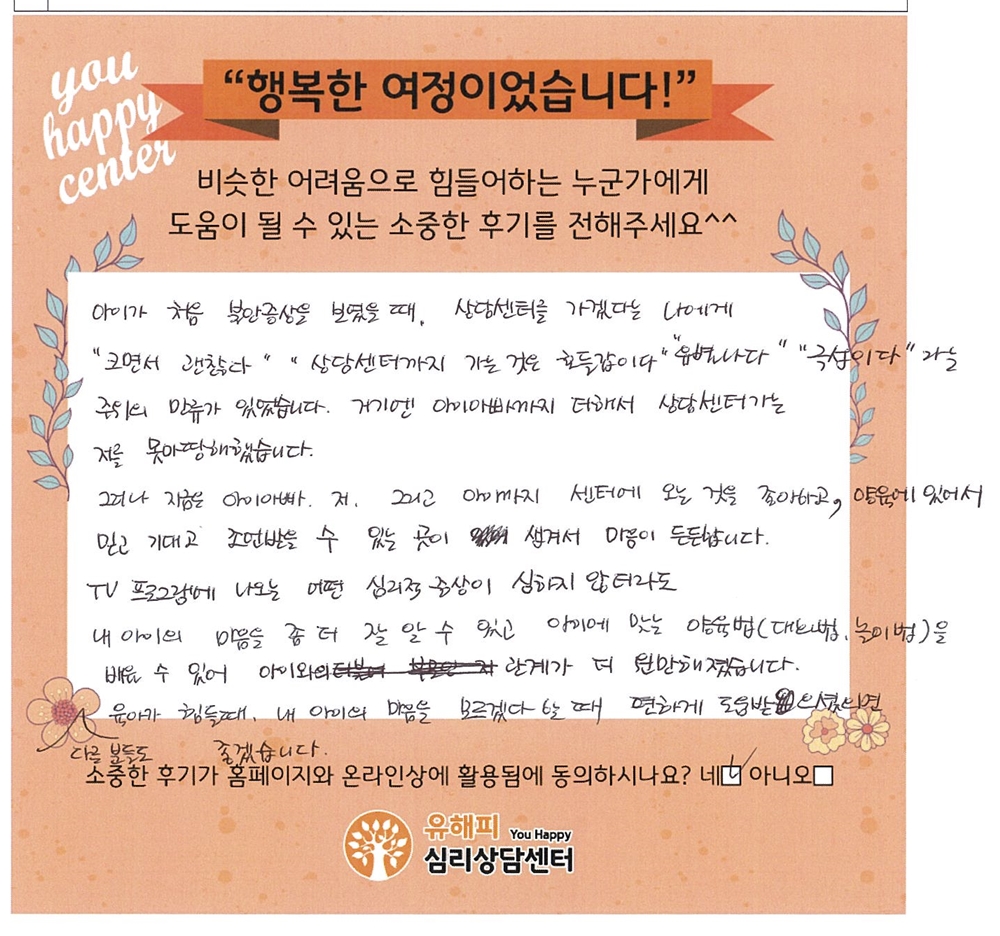 you
happy
center
“행복한 여정이었습니다!”
비슷한 어려움으로 힘들어하는 누군가에게
도움이 될 수 있는 소중한 후기를 전해주세요^^
아이가 처음 불안증상을 보였을 때, 상담센터를 가겠다는 나에게
"크면서 괜찮다" "상담센터까지 가는 것은 호들갑이다" "유별나다" "극성이다" 라는
주위의 만류가 있었습니다. 거기엔 아이아빠까지 더해서 상담센터가는
저를 못마땅해했습니다.
그러나 지금은 아이아빠. 저, 그리고 아이까지 센터에 오는 것을 좋아하고, 양육에 있어서
믿고 기대고 조언받을 수 있는 곳이 생겨서 마음이 든든합니다.
TV 프로그램에 나오는 어떤 심리적 증상이 심하지 않더라도
내 아이의 마음을 좀 더 잘 알 수 있고 아이에 맞는 양육법(대화법, 놀이법)을
배울 수 있어 아이와의 관계가 더 원만해졌습니다.
육아가 힘들때, 내 아이의 마음을 모르겠다 할 때 편하게 도움받으셨으면
다른 분들도 좋겠습니다.
소중한 후기가 홈페이지와 온라인상에 활용됨에 동의하시나요? 네☑ 아니오□
유해피 You Happy
심리상담센터